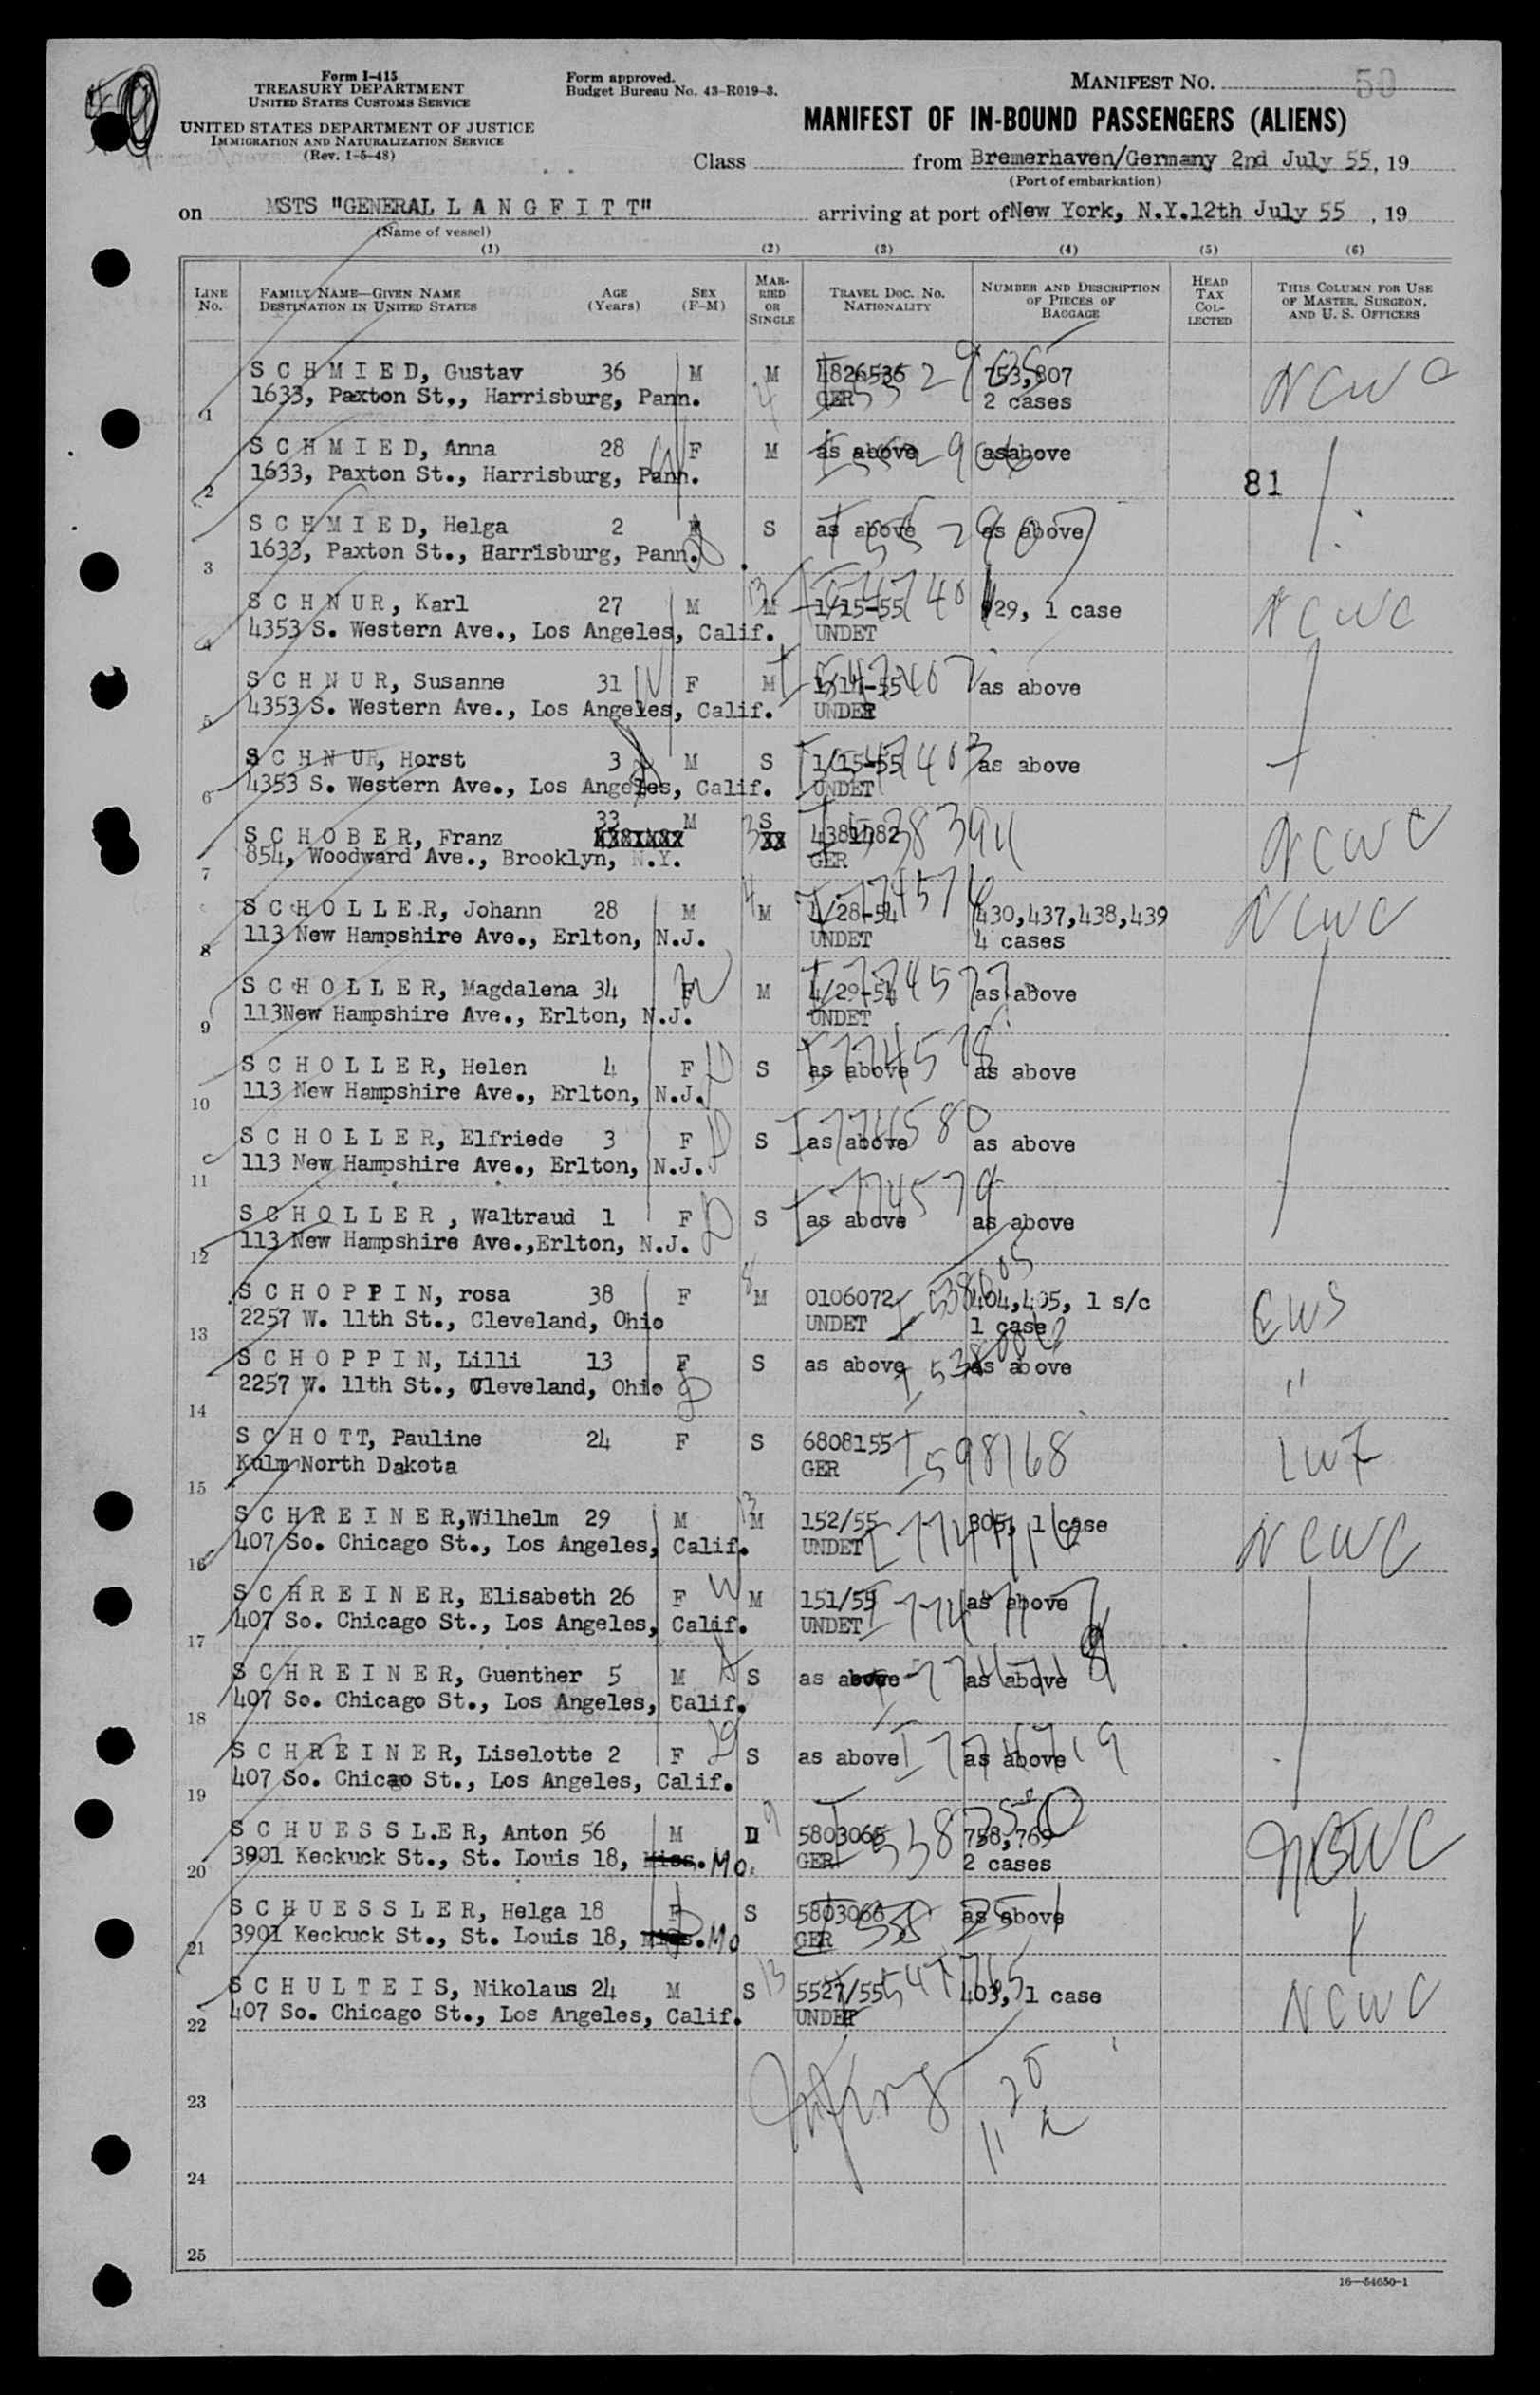 Form I-415
TREASURY DEPARTMENT
UNITED STATES CUSTOMS SERVICE
UNITED STATES DEPARTMENT OF JUSTICE
IMMIGRATION AND NATURALIZATION SERVICE
(Rev. 1-5-48)
Form approved.
Budget Bureau No. 43-R019-3.
MANIFEST NO. 50
MANIFEST OF IN-BOUND PASSENGERS (ALIENS)
Class from Bremerhaven/Germany 2nd July 55, 19
(Port of embarkation)
on MSTS "GENERAL L A N G F I T T" arriving at port of New York, N.Y. 12th July 55, 19
(Name of vessel)
(1) (2) (3) (4) (5) (6)
LINE No. FAMILY NAME—GIVEN NAME DESTINATION IN UNITED STATES AGE (Years) SEX (F-M) MARRIED OR SINGLE TRAVEL DOC. NO. NATIONALITY NUMBER AND DESCRIPTION OF PIECES OF BAGGAGE HEAD TAX COLLECTED THIS COLUMN FOR USE OF MASTER, SURGEON, AND U. S. OFFICERS
S C H M I E D, Gustav 36 M M 4826536 753,807 NCWC
1 1633, Paxton St., Harrisburg, Pann. GER 2 cases
S C H M I E D, Anna 28 F M as above asabove
2 1633, Paxton St., Harrisburg, Pann. 81
S C H M I E D, Helga 2 S as above as above
3 1633, Paxton St., Harrisburg, Pann.
S C H N U R, Karl 27 M M 1/15-55 29, 1 case NCWC
4 4353 S. Western Ave., Los Angeles, Calif. UNDET
S C H N U R, Susanne 31 F M as above
5 4353 S. Western Ave., Los Angeles, Calif. UNDET
S C H N U R, Horst 3 M S 1/15-55 as above
6 4353 S. Western Ave., Los Angeles, Calif. UNDET
S C H O B E R, Franz 33 M S 4381182 NCWC
7 854, Woodward Ave., Brooklyn, N.Y. GER
S C H O L L E R, Johann 28 M M 4/28-54 430,437,438,439 NCWC
8 113 New Hampshire Ave., Erlton, N.J. UNDET 4 cases
S C H O L L E R, Magdalena 34 F M 4/29-54 as above
9 113New Hampshire Ave., Erlton, N.J. UNDET
S C H O L L E R, Helen 4 F S as above as above
10 113 New Hampshire Ave., Erlton, N.J. I 774578
S C H O L L E R, Elfriede 3 F S as above as above
11 113 New Hampshire Ave., Erlton, N.J. I 774580
S C H O L L E R , Waltraud 1 F S as above as above
12 113 New Hampshire Ave.,Erlton, N.J. I 774579
S C H O P P I N, rosa 38 F M 0106072 404,405, 1 s/c CWS
13 2257 W. 11th St., Cleveland, Ohio UNDET 1 case
S C H O P P I N, Lilli 13 F S as above as above "
14 2257 W. 11th St., Cleveland, Ohio
S C H O T T, Pauline 24 F S 6808155 I 598168 LWF
15 Kulm North Dakota GER
S C H R E I N E R,Wilhelm 29 M M 152/55 305, 1 case NCWC
16 407 So. Chicago St., Los Angeles, Calif. UNDET
S C H R E I N E R, Elisabeth 26 F M 151/55 as above
17 407 So. Chicago St., Los Angeles, Calif. UNDET
S C H R E I N E R, Guenther 5 M S as above as above
18 407 So. Chicago St., Los Angeles, Calif.
S C H R E I N E R, Liselotte 2 F S as above as above
19 407 So. Chicao St., Los Angeles, Calif.
S C H U E S S L.E R, Anton 56 M D 5803065 758,769 NCWC
20 3901 Keckuck St., St. Louis 18, Miss. Mo. GER 2 cases
S C H U E S S L E R, Helga 18 F S 5803066 as above
21 3901 Keckuck St., St. Louis 18, Miss. Mo GER
S C H U L T E I S, Nikolaus 24 M S 5527/55 403, 1 case NCWC
22 407 So. Chicago St., Los Angeles, Calif. UNDET
23
24
25
16—54650-1